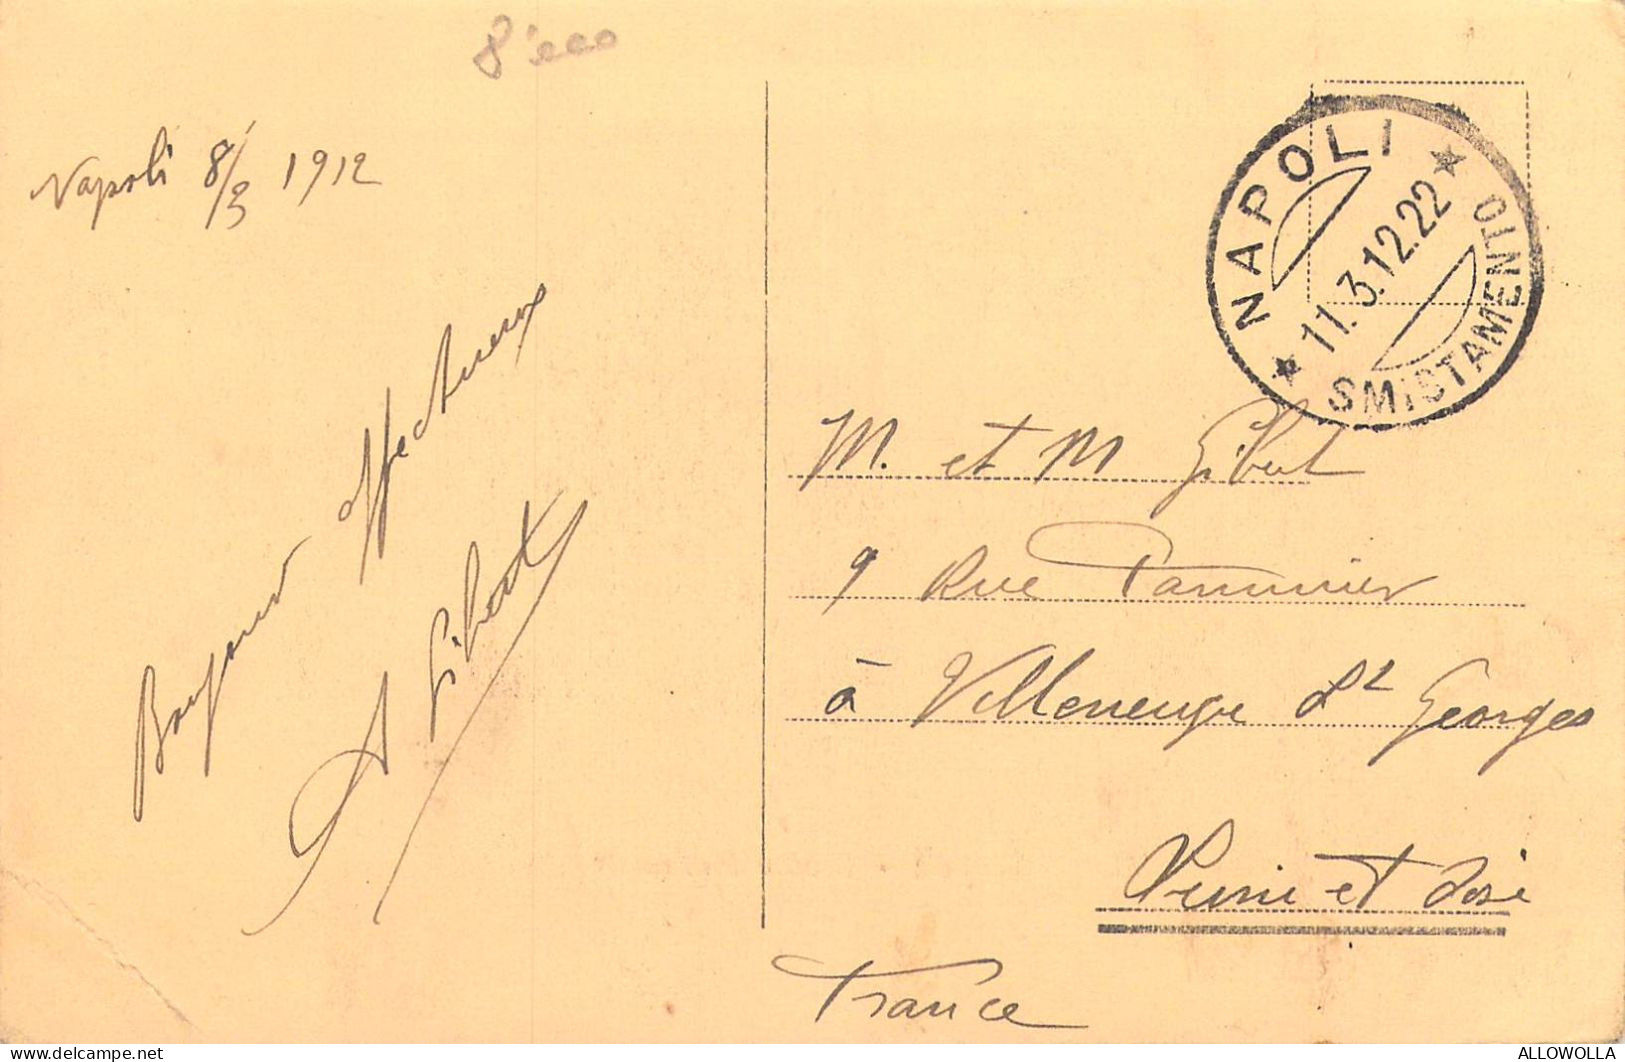 8'000
Napoli 8/3 1912
Bonjour affectueux
A Gibert
NAPOLI
11.3.12.22
SMISTAMENTO
M. et M Gibert
9 Rue
à Villeneuve St Georges
Seine et Oise
France
www.delcampe.net
ALLOWOLLA